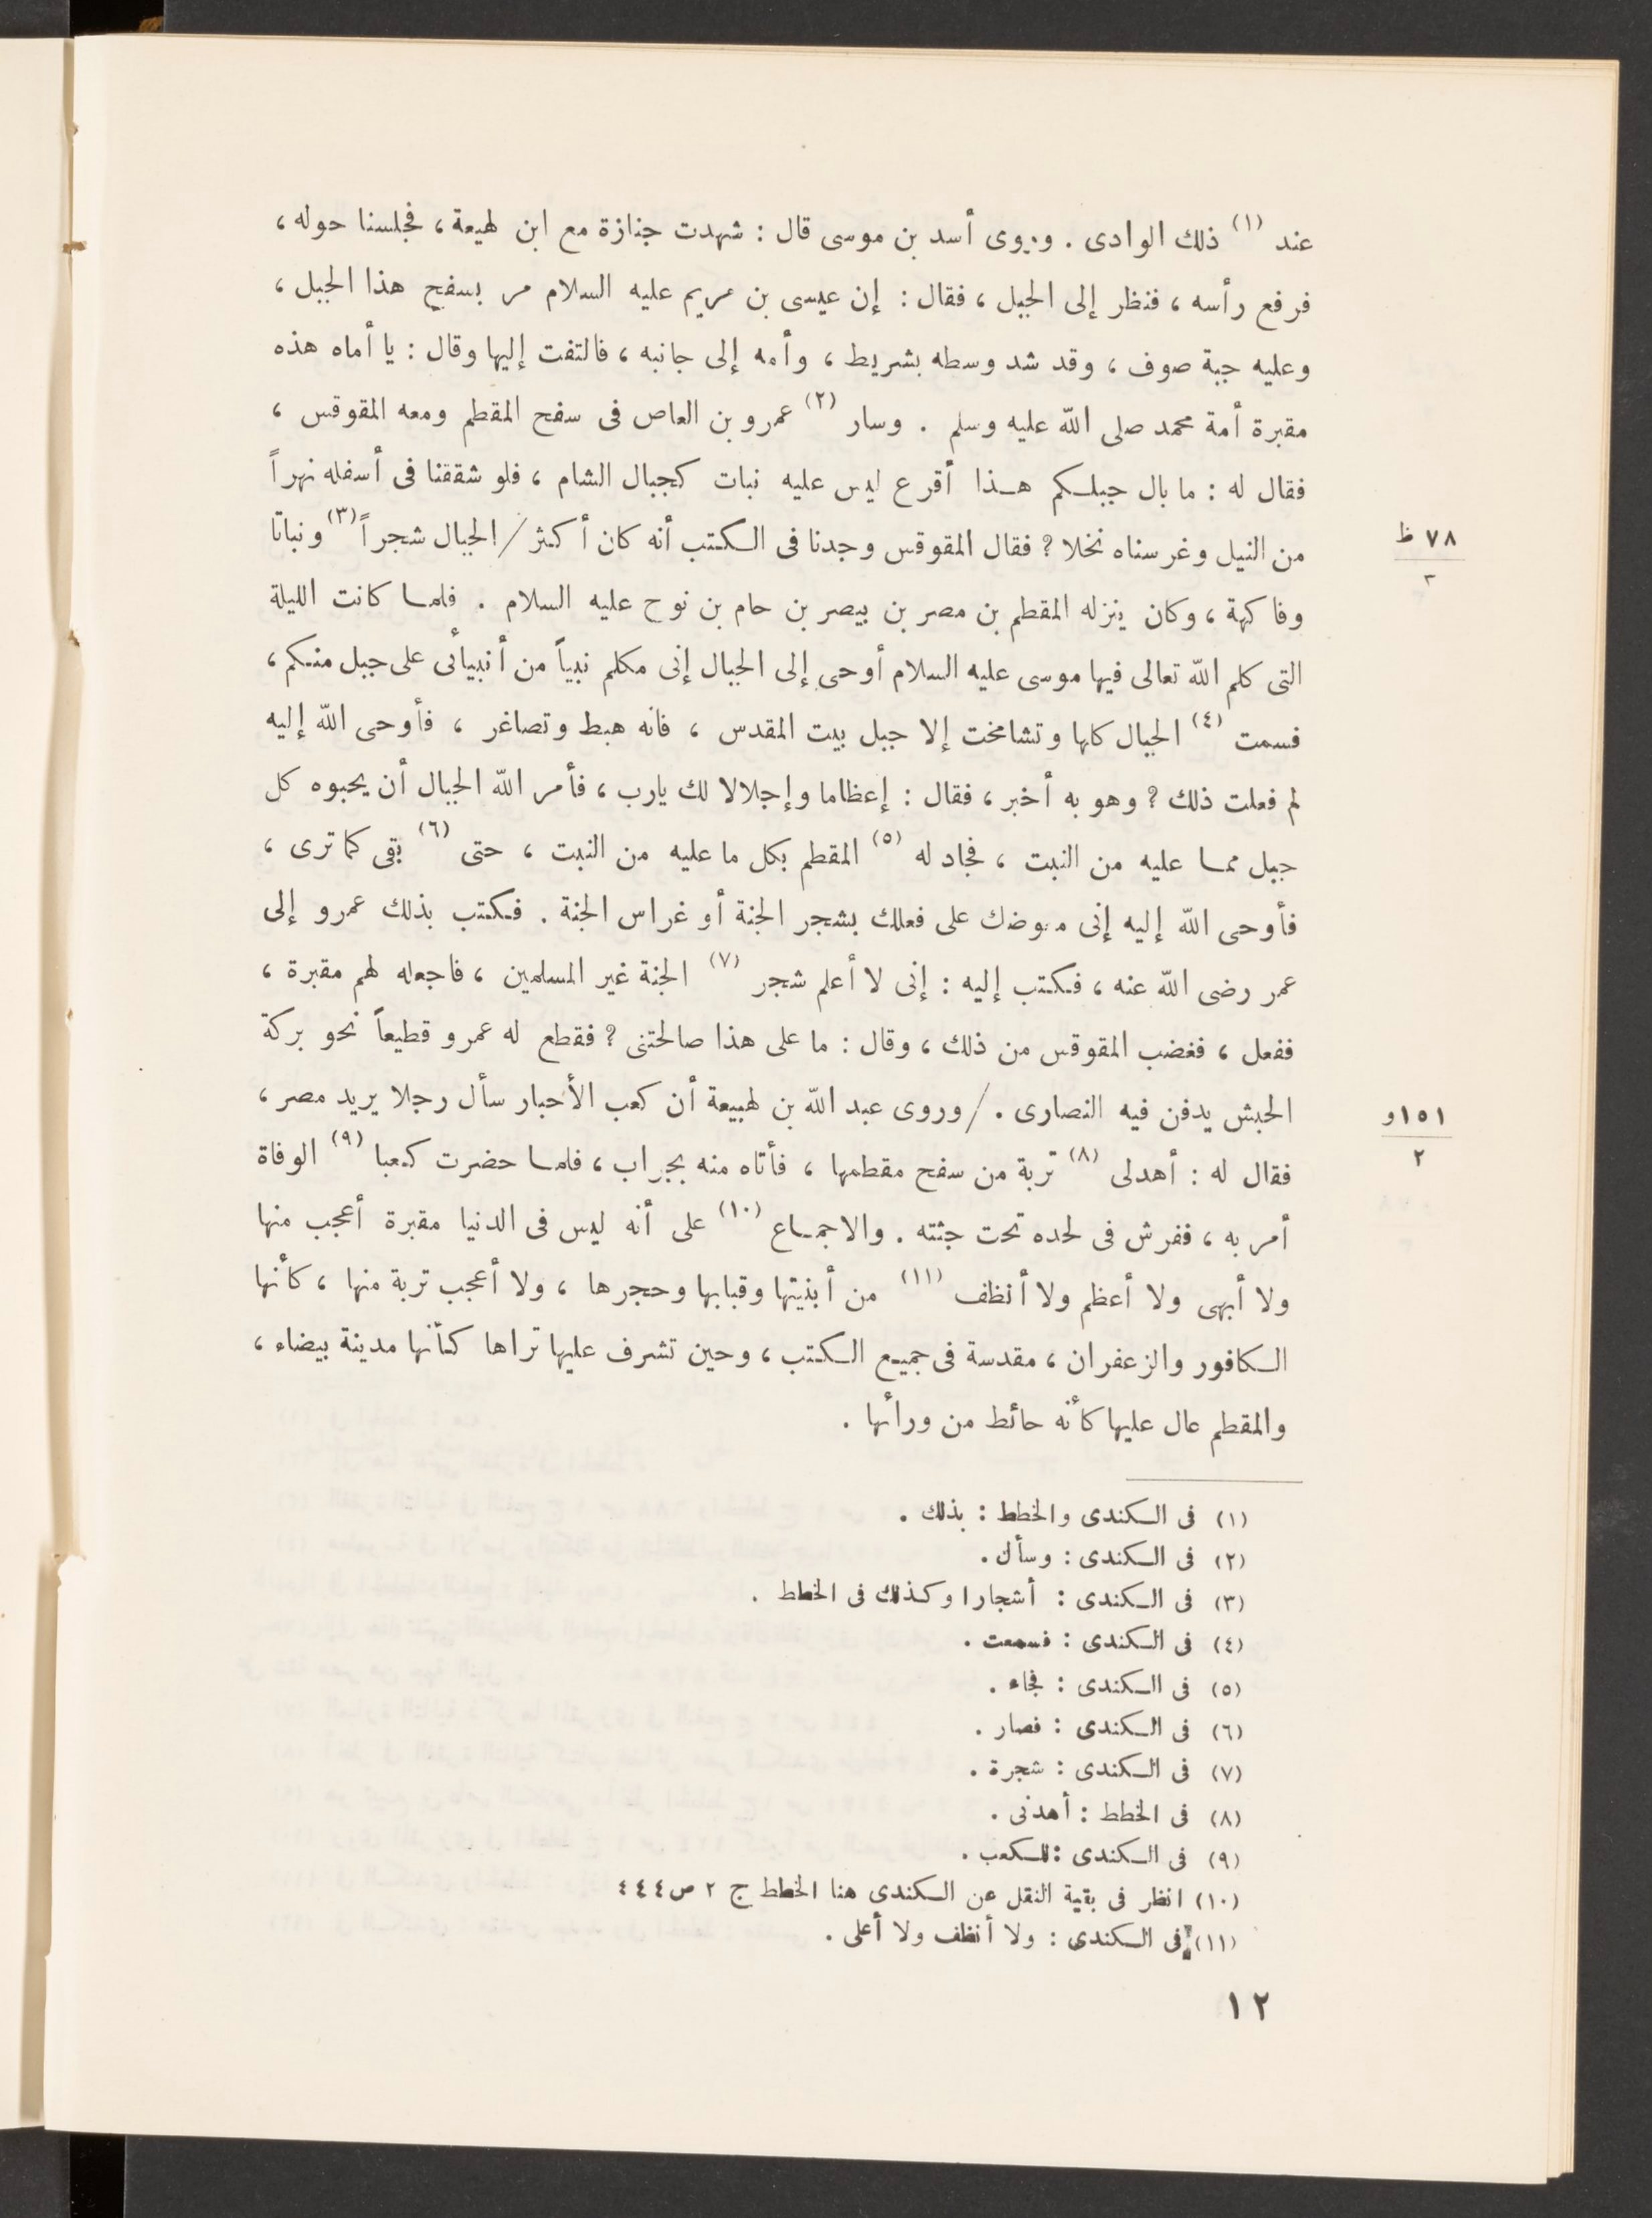 عند (١) ذلك الوادى . وروى أسد بن موسى قال : شهدت جنازة مع ابن لهيعة ، فجلسنا حوله ،
فرفع رأسه ، فنظر إلى الجبل ، فقال : إن عيسى بن مريم عليه السلام مر بسفح هذا الجبل ،
وعليه جبة صوف ، وقد شد وسطه بشريط ، وأمه إلى جانبه ، فالتفت إليها وقال : يا أماه هذه
مقبرة أمة محمد صلى الله عليه وسلم . وسار (٢) عمرو بن العاص فى سفح المقطم ومعه المقوقس ،
فقال له : ما بال جبلكم هذا أقرع ليس عليه نبات كجبال الشام ، فلو شققنا فى أسفله نهراً
من النيل وغرسناه نخلا ؟ فقال المقوقس وجدنا فى الكتب أنه كان أكثر / الجبال شجراً (٣) ونباتا
٧٨ ظ
٣
وفاكهة ، وكان ينزله المقطم بن مصر بن بيصر بن حام بن نوح عليه السلام . فلما كانت الليلة
التى كلم الله تعالى فيها موسى عليه السلام أوحى إلى الجبال إنى مكلم نبياً من أنبيائى على جبل منكم ،
فسمت (٤) الجبال كلها وتشامخت إلا جبل بيت المقدس ، فانه هبط وتصاغر ، فأوحى الله إليه
لم فعلت ذلك ؟ وهو به أخبر ، فقال : إعظاما وإجلالا لك يارب ، فأمر الله الجبال أن يحبوه كل
جبل مما عليه من النبت ، فجاد له (٥) المقطم بكل ما عليه من النبت ، حتى (٦) بقى كما ترى ،
فأوحى الله إليه إنى معوضك على فعلك بشجر الجنة أو غراس الجنة . فكتب بذلك عمرو إلى
عمر رضى الله عنه ، فكتب إليه : إنى لا أعلم شجر (٧) الجنة غير المسلمين ، فاجعله لهم مقبرة ،
ففعل ، فغضب المقوقس من ذلك ، وقال : ما على هذا صالحتنى ؟ فقطع له عمرو قطيعاً نحو بركة
الحبش يدفن فيه النصارى . / وروى عبد الله بن لهيعة أن كعب الأحبار سأل رجلا يريد مصر ،
١٥١ و
٢
فقال له : أهدلى (٨) تربة من سفح مقطمها ، فأتاه منه بجراب ، فلما حضرت كعبا (٩) الوفاة
أمر به ، ففرش فى لحده تحت جثته . والاجماع (١٠) على أنه ليس فى الدنيا مقبرة أعجب منها
ولا أبهى ولا أعظم ولا أنظف (١١) من أبنيتها وقبابها وحجرها ، ولا أعجب تربة منها ، كأنها
الكافور والزعفران ، مقدسة فى جميع الكتب ، وحين تشرف عليها تراها كأنها مدينة بيضاء ،
والمقطم عال عليها كأنه حائط من ورائها .
(١) فى الكندى والخطط : بذلك .
(٢) فى الكندى : وسأل .
(٣) فى الكندى : أشجارا وكذلك فى الخطط .
(٤) فى الكندى : فسمعت .
(٥) فى الكندى : فجاء .
(٦) فى الكندى : فصار .
(٧) فى الكندى : شجرة .
(٨) فى الخطط : أهدنى .
(٩) فى الكندى : لكعب .
(١٠) انظر فى بقية النقل عن الكندى هنا الخطط ج ٢ ص ٤٤٤
(١١) فى الكندى : ولا أنظف ولا أعلى .
١٢